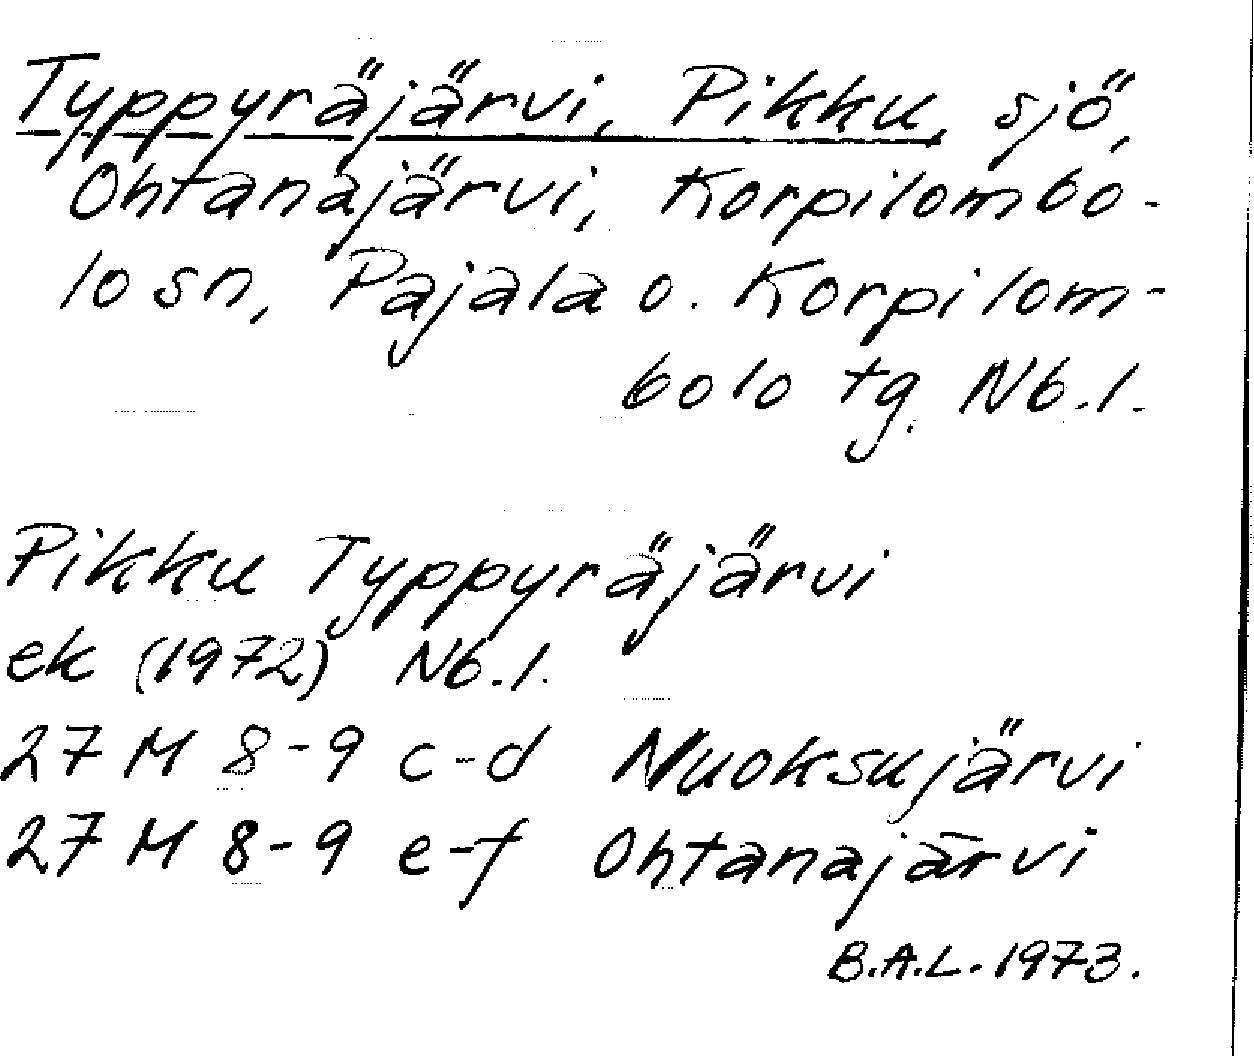 Typpyräjärvi, Pikku, sjö,
Ohtanajärvi, Korpilombo-
lo sn, Pajala o. Korpilom-
bolo tg. Nb.l.
Pikku Typpyräjärvi
ek (1972) Nb.l.
27 M 8-9 c-d Nuoksujärvi
27 M 8-9 e-f Ohtanajärvi
B.A.L. 1973.